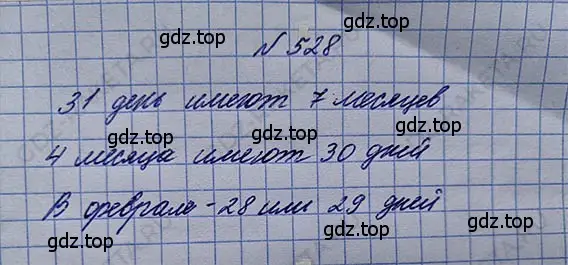 gdz.top
№ 528
gdz.top
gdz.top
31 день имеют 7 месяцев
4 месяца имеют 30 дней
gdz.top
gdz.top
В феврале - 28 или 29 дней
gdz.top
gdz.top